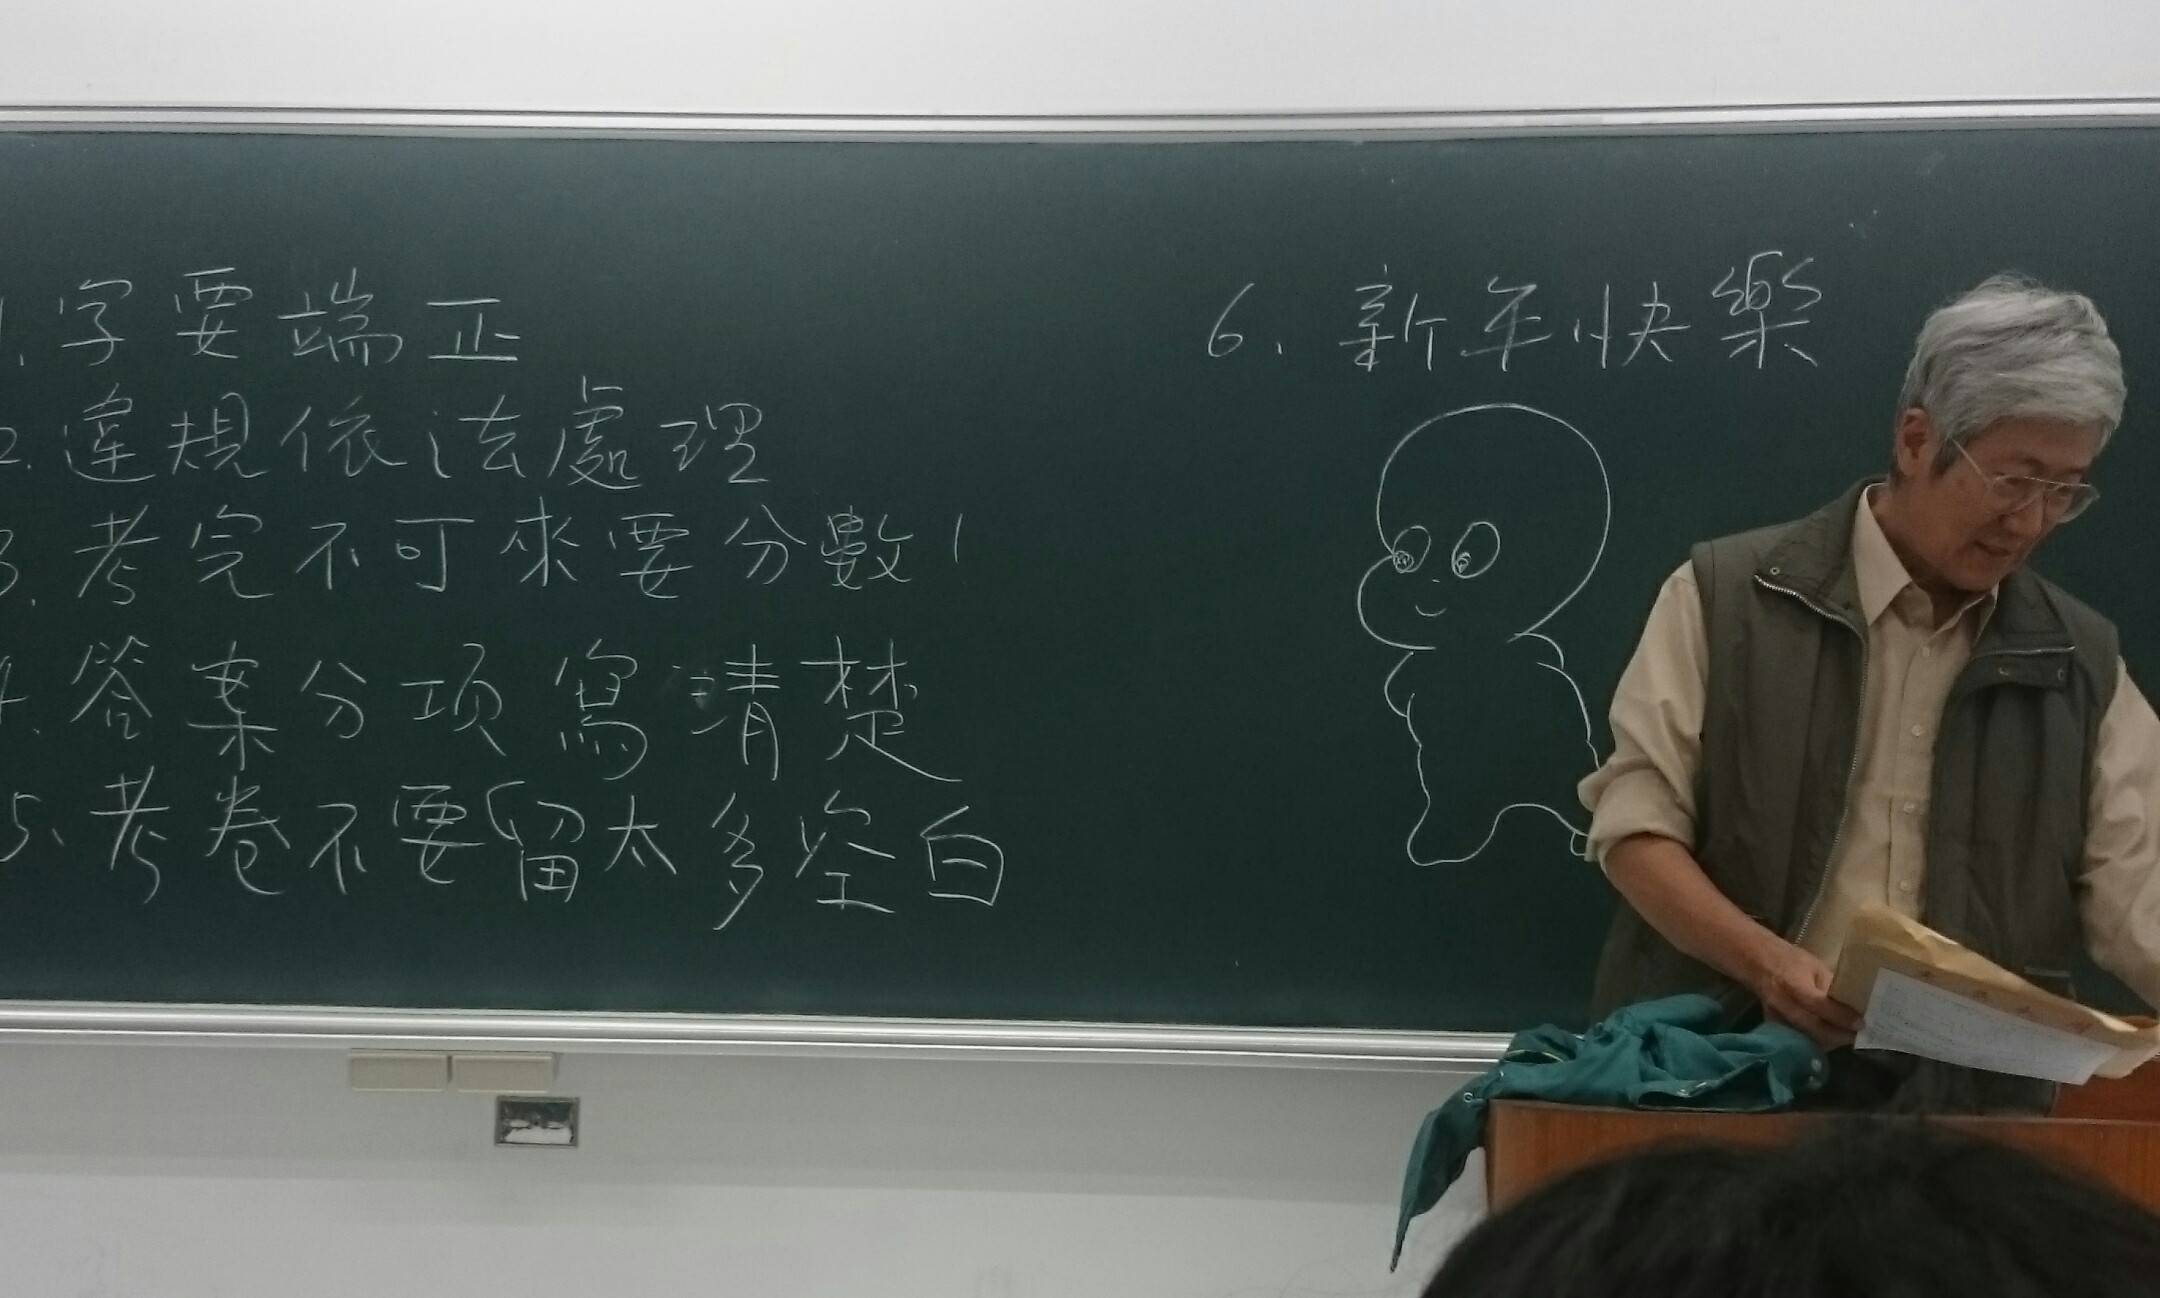 1. 字要端正
2. 違規依法處理
3. 考完不可來要分數!
4. 答案分項寫清楚
5. 考卷不要留太多空白
6. 新年快樂